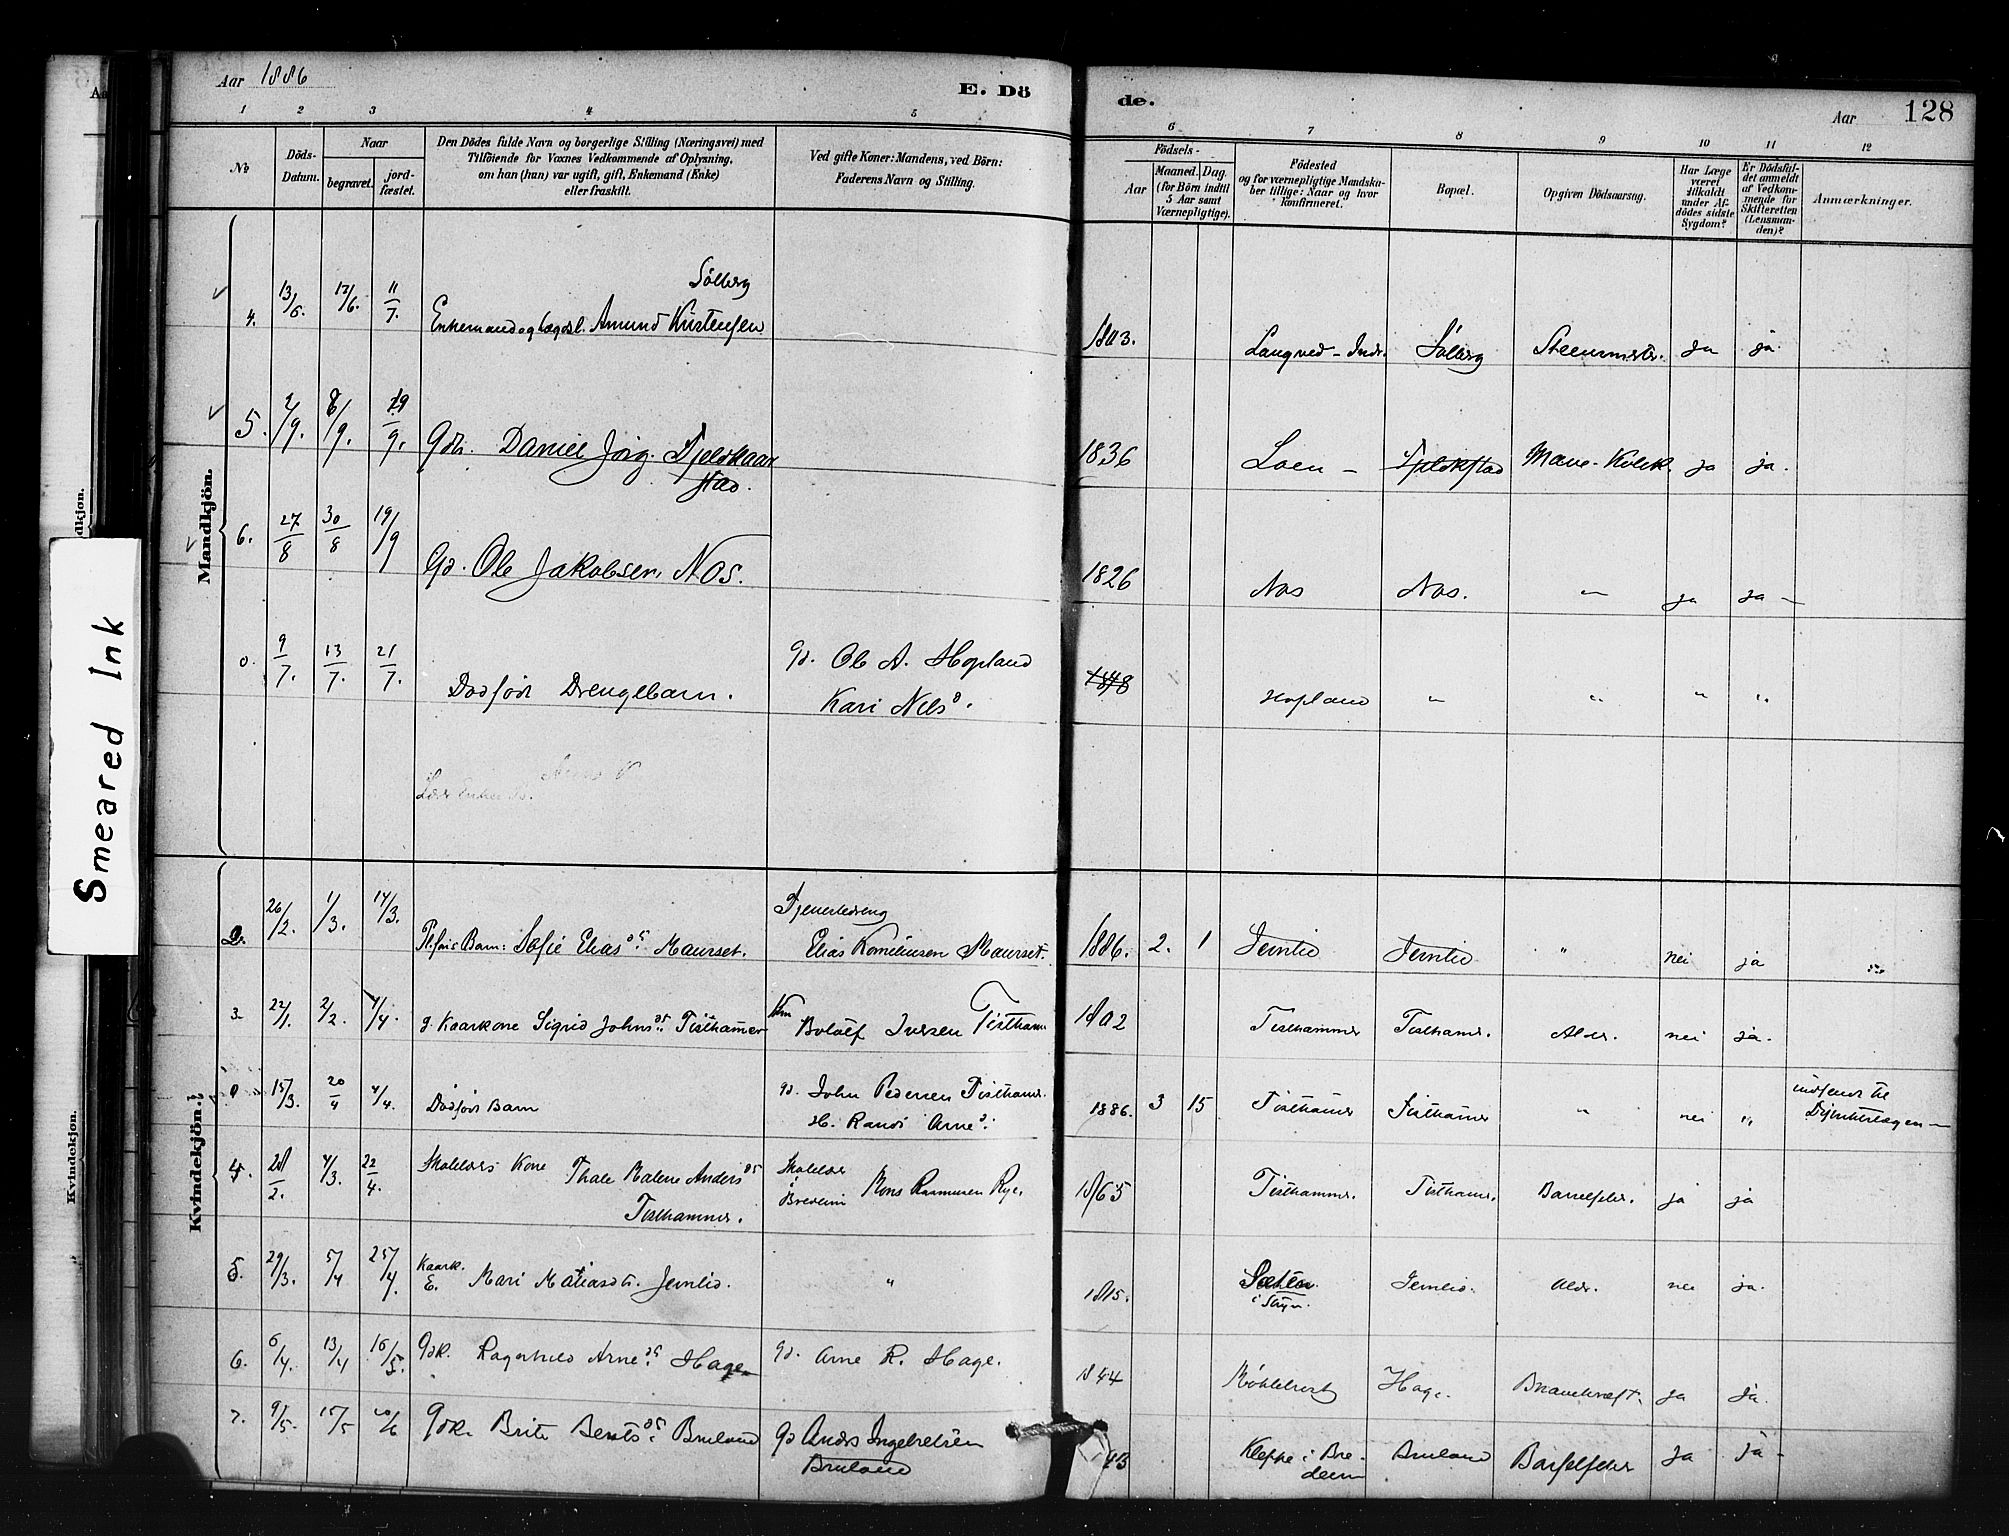 Aar 1886
E. Dö
de.
Aar
128
1 2 3 4 5
6 7 8 9 10 11 12
No
Döds-Datum.
Naar
begravet.
jord-fæstet.
Den Dödes fulde Navn og borgerlige Stilling (Næringsvei) med
Tilföiende for Voxnes Vedkommende af Oplysning,
om han (hun) var ugift, gift, Enkemand (Enke)
eller fraskilt.
Ved gifte Koner: Mandens, ved Börn:
Faderens Navn og Stilling.
Födsels-
Aar
Maaned. Dag.
(for Börn indtil
5 Aar samt
Værnepligtige).
Födested
og for værnepligtige Mandska-
ber tillige: Naar og hvor
konfirmeret.
Bopæl.
Opgiven Dödsaarsag.
Har Læge
været
tilkaldt
under Af-
dödes sidste
Sygdom?
Er Dödsfal-
det anmeldt
af Vedkom-
mende for
Skifteretten
(Lensman-
den)?
Anmærkninger.
Mandkjön.
Sölberg
4. 13/6. 17/6. 11/7. Enkemand og Lægdsl. Amund Kristensen 1803. Langved - Indr. Sölberg ja ja
5. 2/9. 8/9. 19/9. Gdr. Daniel Jörg. Tjeldkaar
stad.
1836 Loen - Tjeldkstad Mave- ja ja.
6. 27/8 30/8 19/9 Gd. Ole Jakobsen Nos. 1826 Nos Nos. " ja ja -
0. 9/7. 13/7. 21/7. Dødfødt Drengebarn. Gd. Ole A. Hopland
Kari Nilsd.
1848 Hopland " " " "
Kvindekjön.
2. 26/2. 1/3. 14/3. Barn: Sofie Eliasdt. Maurset. Tjenestedreng
Elias Korneliusen Maurset. 1886. 2. 1 Jemlid Jemlid " nei ja
3. 22/1. 2/2. 4/4. g. Kaarkone Sigrid Johnsdt. Tisthamer Km
Bololf Iversen Tistham 1802 Tisthammer Tisthamr. Alder. nei ja.
0 15/3. 20/4 4/4. Dødfødt Barn Gd. John Pedersen Tisthamr.
H. Randi Arned.
1886. 3 15 Tisthamer Tisthamer " nei " indsendt til
4. 28/2. 4/3. 22/4. Skolelærs Kone Thale Malene Andersdt
Tisthammer.
Skolelær
i Bredeim Mons Rasmusen Rye. 1865 Tisthammer. Tisthamr. Barselfeber. ja ja
5. 29/3. 5/4 25/4. Kaark.
E. Mari Matiasdt. Jemlid. " 1815. Sæten
i Stryn. Jemlid. Aldr. nei ja.
6. 6/4. 13/4 16/5. Gdk. Ragnhild Arnedt. Hage Gd. Arne R. Hage. 1844 Hage. ja ja.
7. 9/5. 15/5 20/6 Gdk. Brite Bentsdt. Bruland Gd Anders Ingebretsen
Bruland
43 Kleppe i Bre-
deim Bruland Barselfeber ja ja -
Smeared Ink
Kvindekjön.